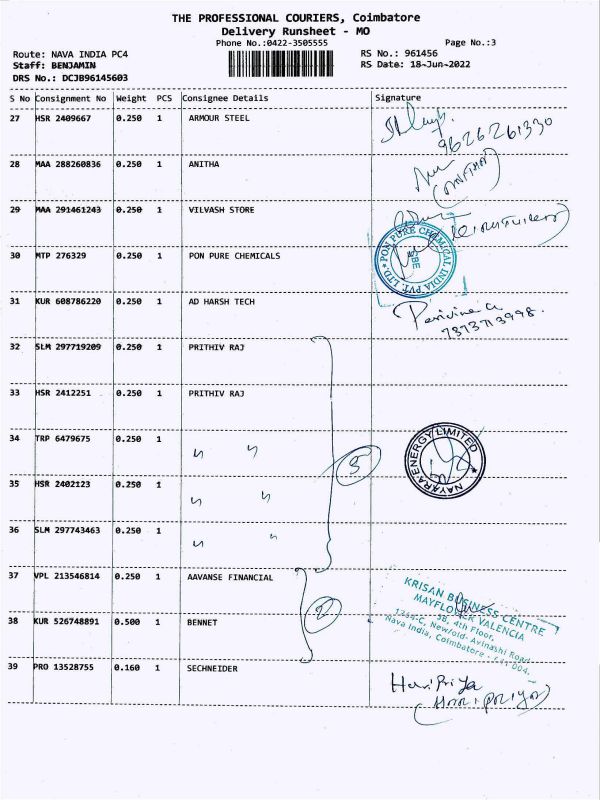 THE PROFESSIONAL COURIERS, Coimbatore
Delivery Runsheet - MO
Phone No.:0422-3505555
Page No.:3
Route: NAVA INDIA PC4
RS No.: 961456
Staff: BENJAMIN
RS Date: 18-Jun-2022
DRS No.: DCJB96145603
S No Consignment No Weight PCS Consignee Details Signature
27 HSR 2409667 0.250 1 ARMOUR STEEL
9626261330
28 MAA 288260836 0.250 1 ANITHA
(ANITHA)
29 MAA 291461243 0.250 1 VILVASH STORE
30 MTP 276329 0.250 1 PON PURE CHEMICALS
PON PURE CHEMICAL INDIA PVT. LTD.
CBE
31 KUR 608786220 0.250 1 AD HARSH TECH
7373713998.
32 SLM 297719209 0.250 1 PRITHIV RAJ
33 HSR 2412251 0.250 1 PRITHIV RAJ
34 TRP 6479675 0.250 1 〃 〃
5
NAYARA ENERGY LIMITED
35 HSR 2402123 0.250 1 〃 〃
36 SLM 297743463 0.250 1 〃 〃
37 VPL 213546814 0.250 1 AAVANSE FINANCIAL
2
KRISAN BUSINESS CENTRE
MAYFLOWER VALENCIA
3B, 4th Floor,
1264-C, Newfold- Avinashi Road
Nava India, Coimbatore - 641 004.
38 KUR 526748891 0.500 1 BENNET
39 PRO 13528755 0.160 1 SECHNEIDER
HariPriya
(Haripriya)